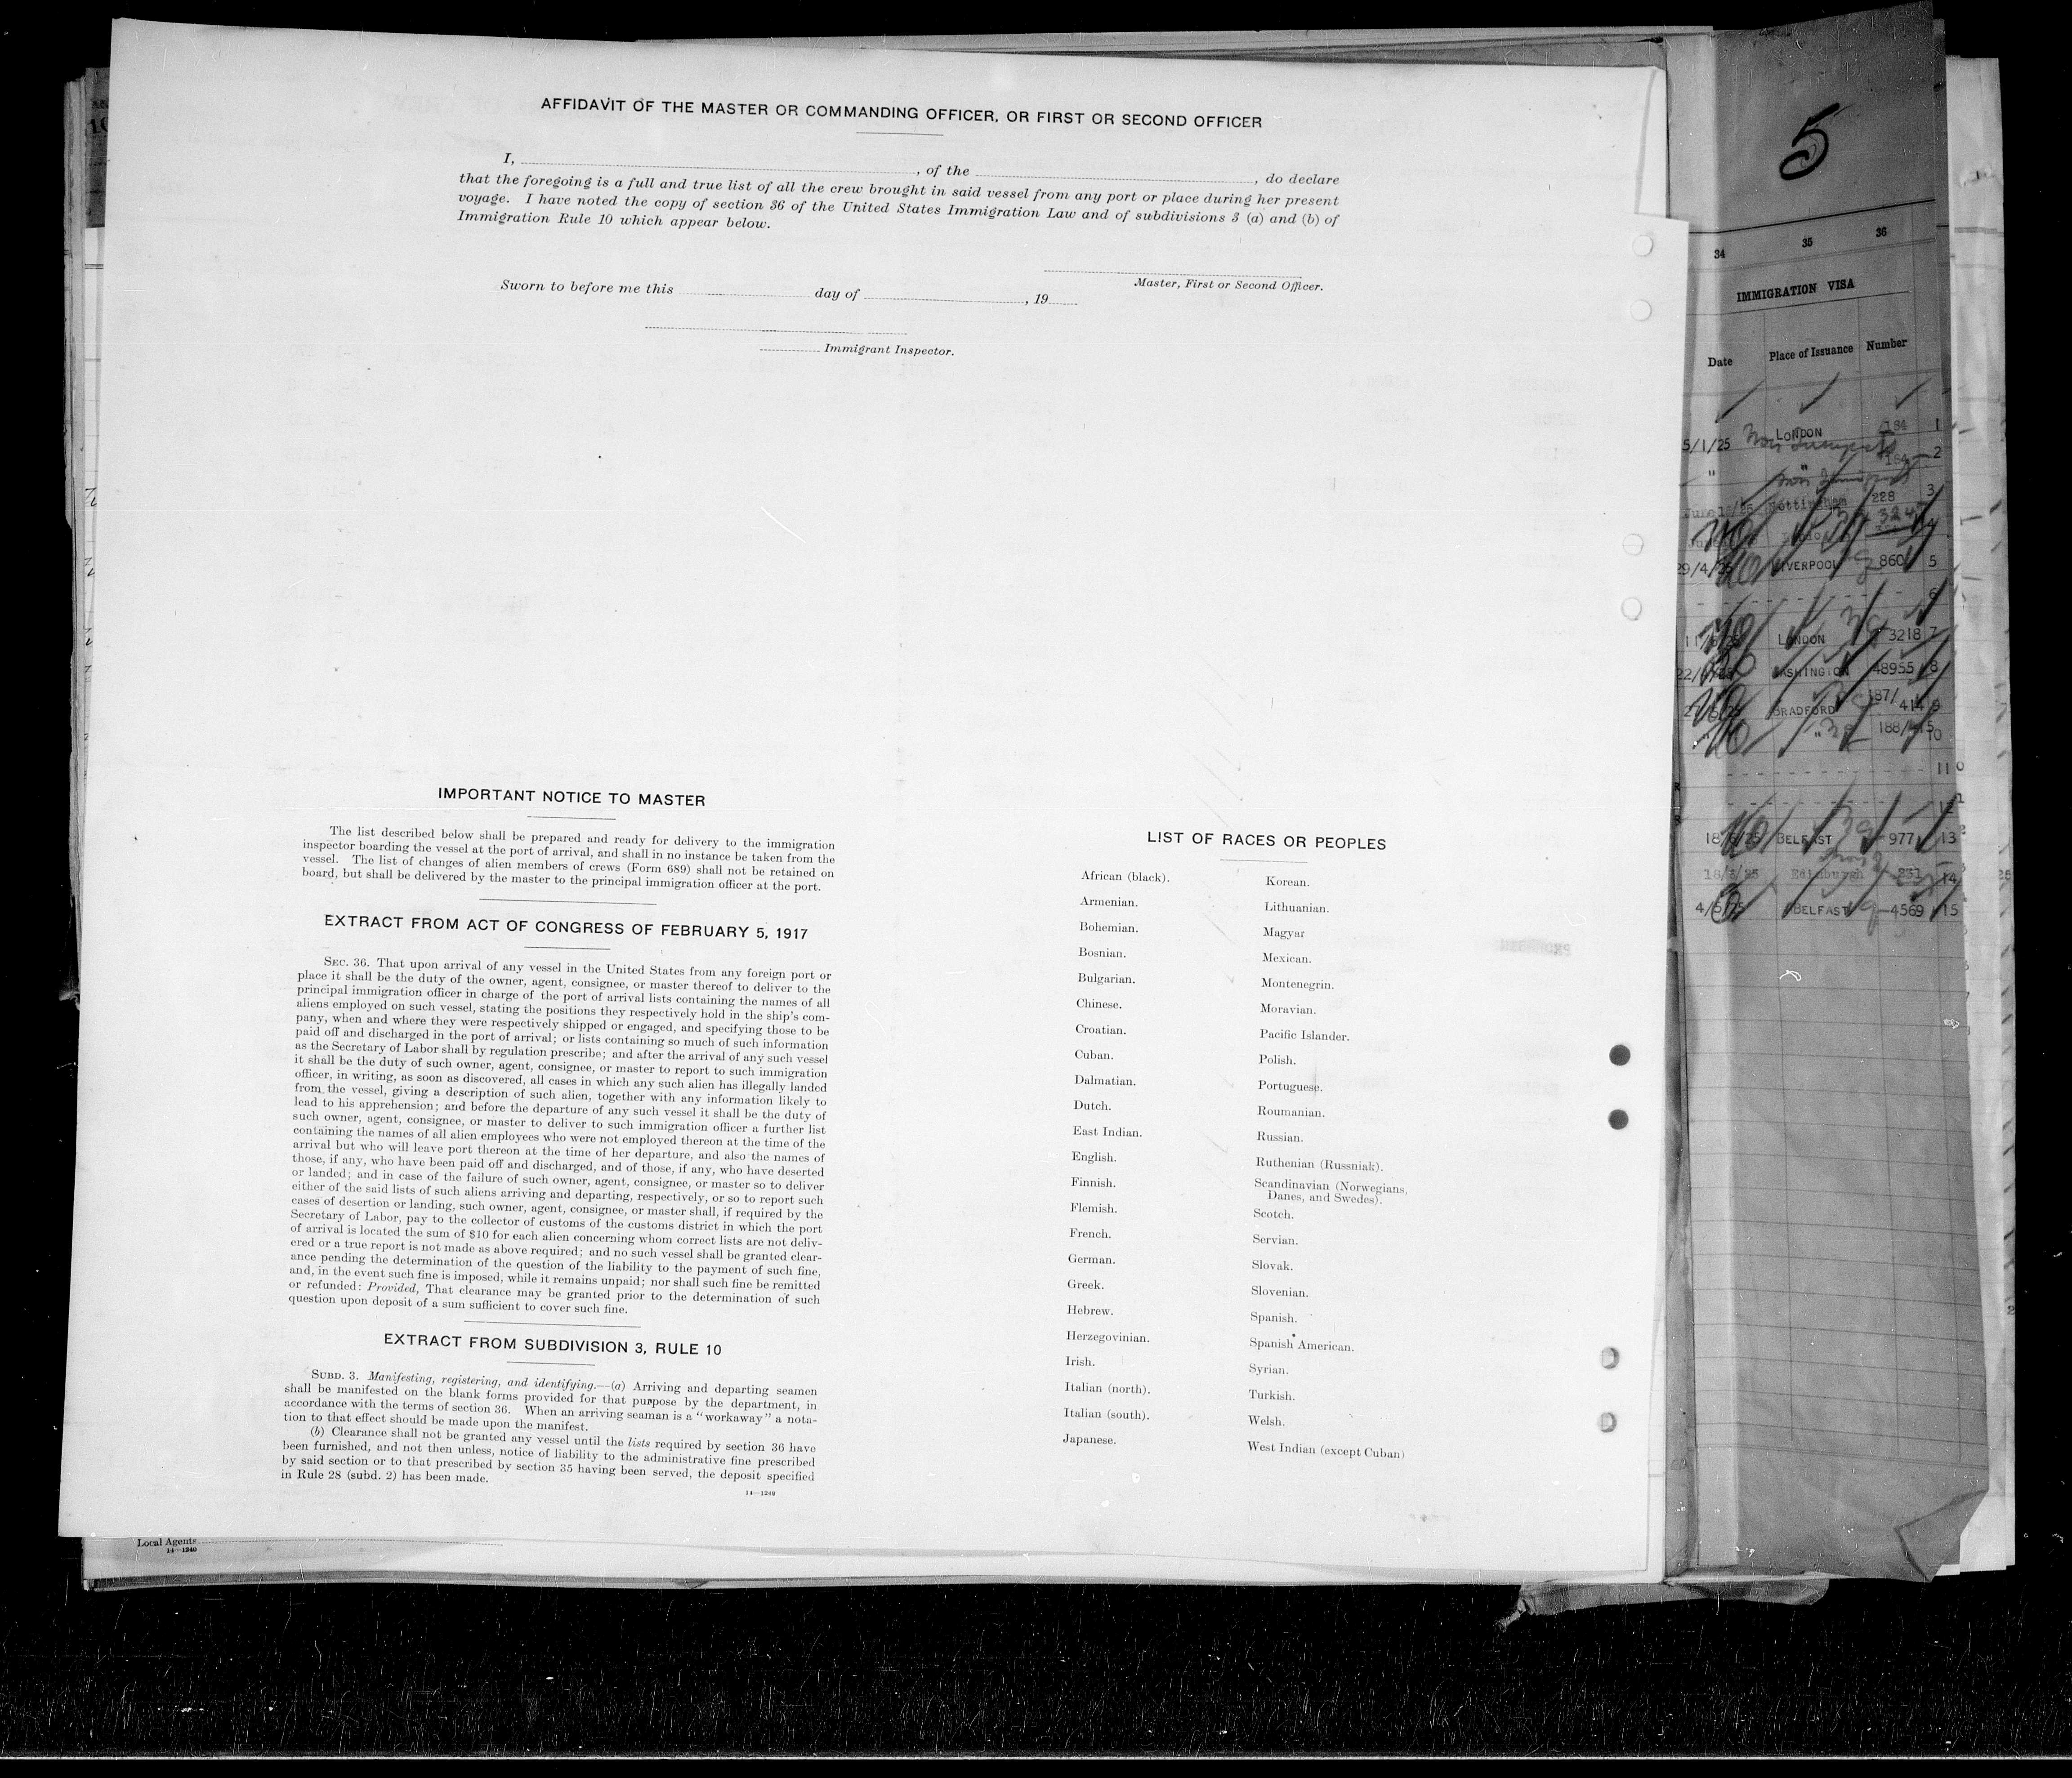 AFFIDAVIT OF THE MASTER OR COMMANDING OFFICER, OR FIRST OR SECOND OFFICER
I, , of the , do declare
that the foregoing is a full and true list of all the crew brought in said vessel from any port or place during her present
voyage. I have noted the copy of section 36 of the United States Immigration Law and of subdivisions 3 (a) and (b) of
Immigration Rule 10 which appear below.
Master, First or Second Officer.
Sworn to before me this day of , 19
Immigrant Inspector.
IMPORTANT NOTICE TO MASTER
The list described below shall be prepared and ready for delivery to the immigration
inspector boarding the vessel at the port of arrival, and shall in no instance be taken from the
vessel. The list of changes of alien members of crews (Form 689) shall not be retained on
board, but shall be delivered by the master to the principal immigration officer at the port.
EXTRACT FROM ACT OF CONGRESS OF FEBRUARY 5, 1917
SEC. 36. That upon arrival of any vessel in the United States from any foreign port or
place it shall be the duty of the owner, agent, consignee, or master thereof to deliver to the
principal immigration officer in charge of the port of arrival lists containing the names of all
aliens employed on such vessel, stating the positions they respectively hold in the ship's com-
pany, when and where they were respectively shipped or engaged, and specifying those to be
paid off and discharged in the port of arrival; or lists containing so much of such information
as the Secretary of Labor shall by regulation prescribe; and after the arrival of any such vessel
it shall be the duty of such owner, agent, consignee, or master to report to such immigration
officer, in writing, as soon as discovered, all cases in which any such alien has illegally landed
from the vessel, giving a description of such alien, together with any information likely to
lead to his apprehension; and before the departure of any such vessel it shall be the duty of
such owner, agent, consignee, or master to deliver to such immigration officer a further list
containing the names of all alien employees who were not employed thereon at the time of the
arrival but who will leave port thereon at the time of her departure, and also the names of
those, if any, who have been paid off and discharged, and of those, if any, who have deserted
or landed; and in case of the failure of such owner, agent, consignee, or master so to deliver
either of the said lists of such aliens arriving and departing, respectively, or so to report such
cases of desertion or landing, such owner, agent, consignee, or master shall, if required by the
Secretary of Labor, pay to the collector of customs of the customs district in which the port
of arrival is located the sum of $10 for each alien concerning whom correct lists are not deliv-
ered or a true report is not made as above required; and no such vessel shall be granted clear-
ance pending the determination of the question of the liability to the payment of such fine,
and, in the event such fine is imposed, while it remains unpaid; nor shall such fine be remitted
or refunded: Provided, That clearance may be granted prior to the determination of such
question upon deposit of a sum sufficient to cover such fine.
EXTRACT FROM SUBDIVISION 3, RULE 10
SUBD. 3. Manifesting, registering, and identifying.—(a) Arriving and departing seamen
shall be manifested on the blank forms provided for that purpose by the department, in
accordance with the terms of section 36. When an arriving seaman is a "workaway" a nota-
tion to that effect should be made upon the manifest.
(b) Clearance shall not be granted any vessel until the lists required by section 36 have
been furnished, and not then unless, notice of liability to the administrative fine prescribed
by said section or to that prescribed by section 35 having been served, the deposit specified
in Rule 28 (subd. 2) has been made.
14—1240
LIST OF RACES OR PEOPLES
African (black).
Armenian.
Bohemian.
Bosnian.
Bulgarian.
Chinese.
Croatian.
Cuban.
Dalmatian.
Dutch.
East Indian.
English.
Finnish.
Flemish.
French.
German.
Greek.
Hebrew.
Herzegovinian.
Irish.
Italian (north).
Italian (south).
Japanese.
Korean.
Lithuanian.
Magyar
Mexican.
Montenegrin.
Moravian.
Pacific Islander.
Polish.
Portuguese.
Roumanian.
Russian.
Ruthenian (Russniak).
Scandinavian (Norwegians,
Danes, and Swedes).
Scotch.
Servian.
Slovak.
Slovenian.
Spanish.
Spanish American.
Syrian.
Turkish.
Welsh.
West Indian (except Cuban)
Local Agents
14—1240
5
34 35 36
IMMIGRATION VISA
Date Place of Issuance Number
5/1/25 LONDON 184 1
" " 184 2
Nottingham 228 3
29/4/25 LIVERPOOL 860 5
6
LONDON 3218 7
WASHINGTON 48955 8
BRADFORD 187/414 9
" 188/415 10
11
12
18/6/25 BELFAST 977 13
18/3/25 Edinburgh 231 14
4/5/25 BELFAST 4569 15